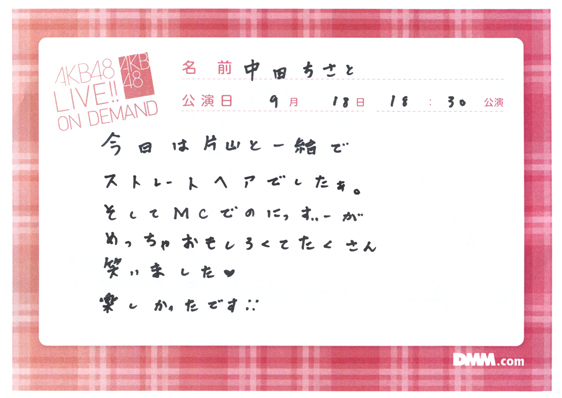 AKB48
LIVE!!
ON DEMAND
AKB
48
名前 中田ちさと
公演日 9月 18日 18:30 公演
今日は片山と一緒で
ストレートヘアでしたぁ。
そしてMCでのにっすぃーが
めっちゃおもしろくてたくさん
笑いました♥
楽しかったです::
DMM.com